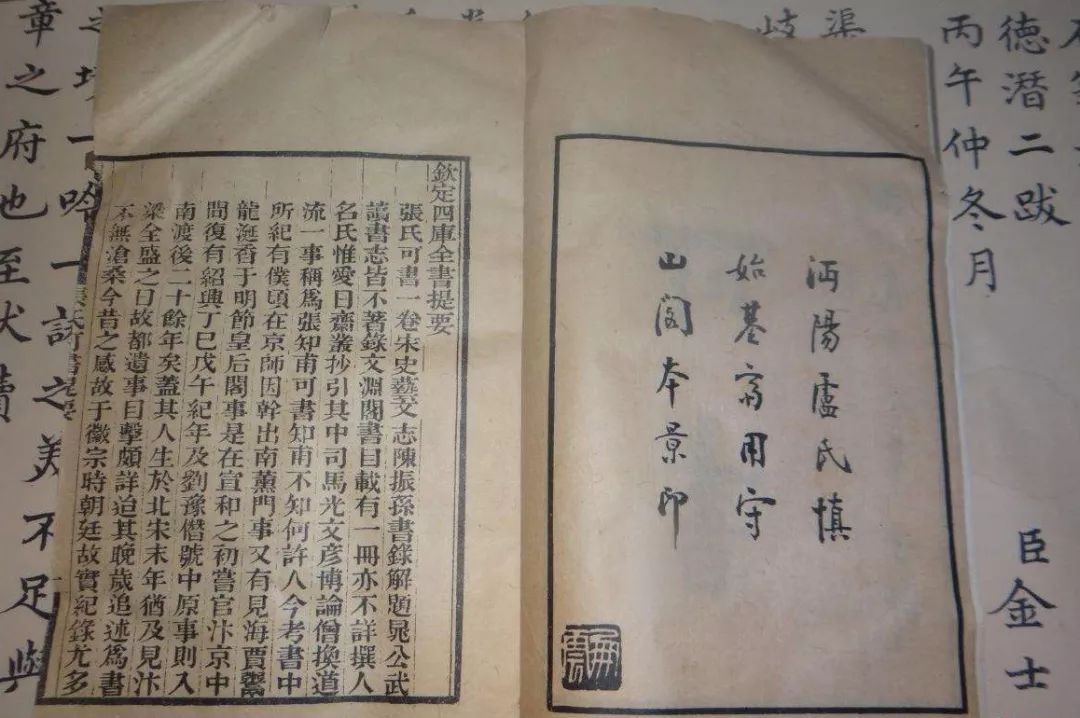 德潛二跋
丙午仲冬月
臣金士
渠
沔陽盧氏慎
始基齋用守
山閣本景印
欽定四庫全書提要
張氏可書一卷宋史藝文志陳振孫書錄解題晁公武
讀書志皆不著錄文淵閣書目載有一冊亦不詳撰人
名氏惟愛日齋叢抄引其中司馬光文彥博論僧換道
流一事稱爲張知甫可書知甫不知何許人今考書中
所紀有僕頃在京師因幹出南薰門事又有見海賈鬻
龍涎香于明節皇后閣事是在宣和之初嘗官汴京中
間復有紹興丁巳戊午紀年及劉豫僭號中原事則入
南渡後二十餘年矣蓋其人生於北宋末年猶及見汴
梁全盛之日故都遺事目擊頗詳迨其晚歲追述爲書
不無滄桑今昔之感故于徽宗時朝廷故實紀錄尤多
一吟一詠之美不足與
章之府也至伏讀